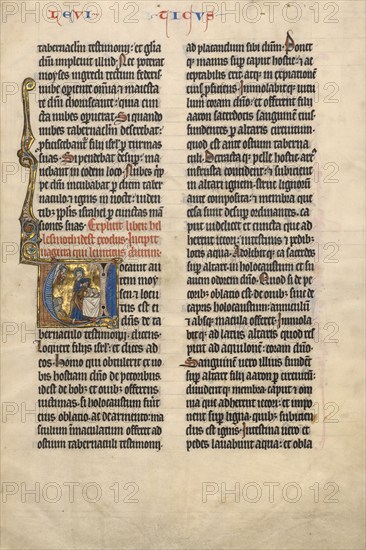 LEVI TICVS
tabernaculum testimonii: et gloria
domini implevit illud. Nec poterat
moyses ingredi tectum federis
nube operiente omnia: et maiesta
te domini choruscante: quia cun
cta nubes operuerat. Si quando
nubes tabernaculum deserebat:
proficiscebantur filii israel per turmas
suas. Si pendebat desuper: ma
nebant in eodem loco. Nubes quip
pe domini incubabat per diem taber
naculo: et ignis in nocte: viden
tibus populis israhel per cunctas man
siones suas. Explicit liber hel
lesmoth idest exodus. Incipit
vagecra qui leviticus dicitur.
Vocavit au
tem moy
sen et locu
tus est ei
dominus de ta
bernaculo testimonii: dicens.
Loquere filiis israel: et dices ad
eos. Homo qui obtulerit ex vo
bis hostiam domino de pecoribus
idest de bobus et ovibus offerens
victimas: si holocaustum fuerit
eius oblatio ac de armento: ma
sculum immaculatum offeret ad
ostium tabernaculi testimonii.
ad placandum sibi dominum. Ponet
que manus super caput hostie: et ac
ceptabilis erit atque in expiationem
eius proficiens. Immolabitque vitu
lum coram domino: et offerent filii
aaron sacerdotis sanguinem eius:
fundentes per altaris circuitum:
quod est ante ostium tabernaculi.
Detractaque pelle hostie: artus
in frusta concident: et subicient
in altari ignem: strue lignorum
ante composita: et membra que
cesa sunt desuper ordinantes. ca
put videlicet et cuncta que ad
herent iecori: intestinis et pedibus
lotis aqua. Adolebitque ea sacerdos
super altare in holocaustum et su
avem odorem domino. Quod si de pe
coribus oblatio est de ovibus sive de
capris holocaustum: anniculum
et absque macula offeret. Immola
bitque ad latus altaris quod respi
cit ad aquilonem: coram domino.
Sanguinem vero illius fundent
super altare filii aaron per circuitum:
dividentque membra. caput et om
nia que adherent iecori: et impo
nent super ligna: quibus subicien
dus est ignis. Intestina vero et
pedes lavabunt aqua: et obla